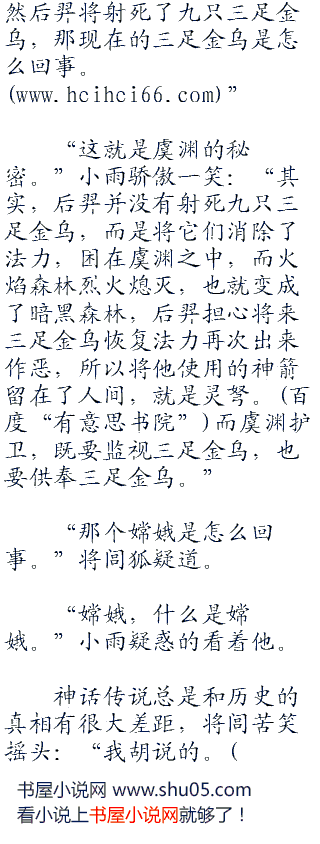 然后羿将射死了九只三足金
乌，那现在的三足金乌是怎
么回事。
(www.hcihci66.com)”
“这就是虞渊的秘
密。”小雨骄傲一笑：“其
实，后羿并没有射死九只三
足金乌，而是将它们消除了
法力，困在虞渊之中，而火
焰森林烈火熄灭，也就变成
了暗黑森林，后羿担心将来
三足金乌恢复法力再次出来
作恶，所以将他使用的神箭
留在了人间，就是灵弩。(百
度“有意思书院”)而虞渊护
卫，既要监视三足金乌，也
要供奉三足金乌。”
“那个嫦娥是怎么回
事。”将闾狐疑道。
“嫦娥，什么是嫦
娥。”小雨疑惑的看着他。
神话传说总是和历史的
真相有很大差距，将闾苦笑
摇头：“我胡说的。(
书屋小说网 www.shu05.com
看小说上书屋小说网就够了！